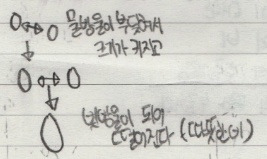 물방울이 부딪혀서
크기가 커지고
빗방울이 되어
떨어진다 (따뜻한 비)